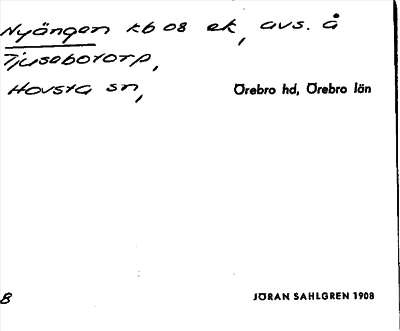 Nyängen kb 08 ek, avs. å
Tjusebotorp,
Hovsta sn,
Örebro hd, Örebro län
8
JÖRAN SAHLGREN 1908